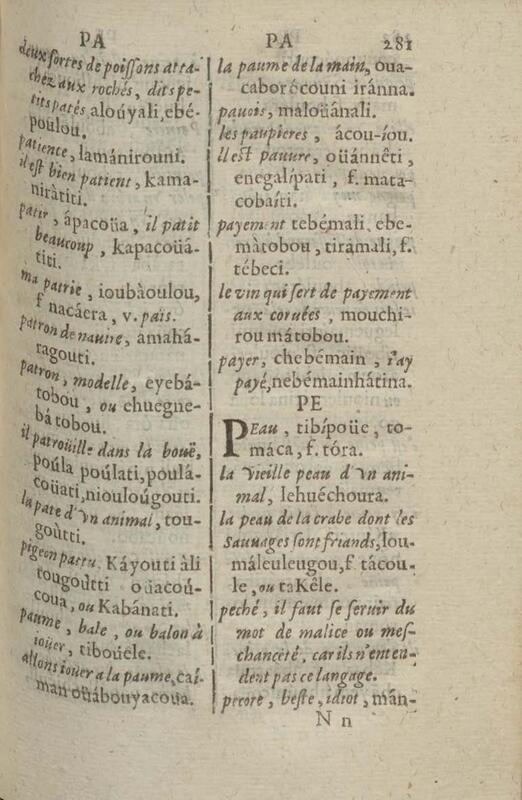 PA
PA
281
deux sortes de poiſſons atta-
chez aux rochés, dits pe-
tits patés aloúyali, ebé-
poulou.
patience, lamánirouni.
il eſt bien patient, kama-
niràtiti.
patir, ápacoüa, il patit
beaucoup, kapacoüá-
titi.
ma patrie, ioubàoulou,
f nacácra, v. païs.
patron de nauire, àmahá-
ragouti.
patron, modelle, eyebá-
tobou, ou chuegne-
bátobou.
il patroüille dans la bouë,
poúla poúlati, poulá-
coüati, nioulоúgouti.
la pate d'vn animal, tou-
goùtti.
pigeon pattu. Káyouti àli
tougoútti oüacoú-
coua, ou Kabánati.
paume, bale, ou balon à
iouer, tibouéle.
allons iouer a la paume, caí-
man oüábouyacoüa.
la paume de la main, oua-
caborécouni iránna.
pauois, maloüánali.
les paupieres, ácou-íou.
Il eſt pauure, oüánnêti,
enegalípati, f. mata-
cobaíti.
payement tebémali, ebe-
màtobou, tirámali, f.
tébeci.
le vin qui ſert de payement
aux coruées, mouchi-
rou mátobou.
payer, chebémain, i'ay
payé, nebémainhátina.
PE
PEau, tibípoüe, to-
máca, f. tóra.
la vieille peau d'vn ani-
mal, lehuéchoura.
la peau de la crabe dont les
Sauuages ſont friands, lou-
máleuleugou, f. tácou-
le, ou taKêle.
peché, il faut ſe ſeruir du
mot de malice ou meſ-
chanceté, car ils n'enten-
dent pas ce langage.
pecore, beſte, idiot, mán-
N n